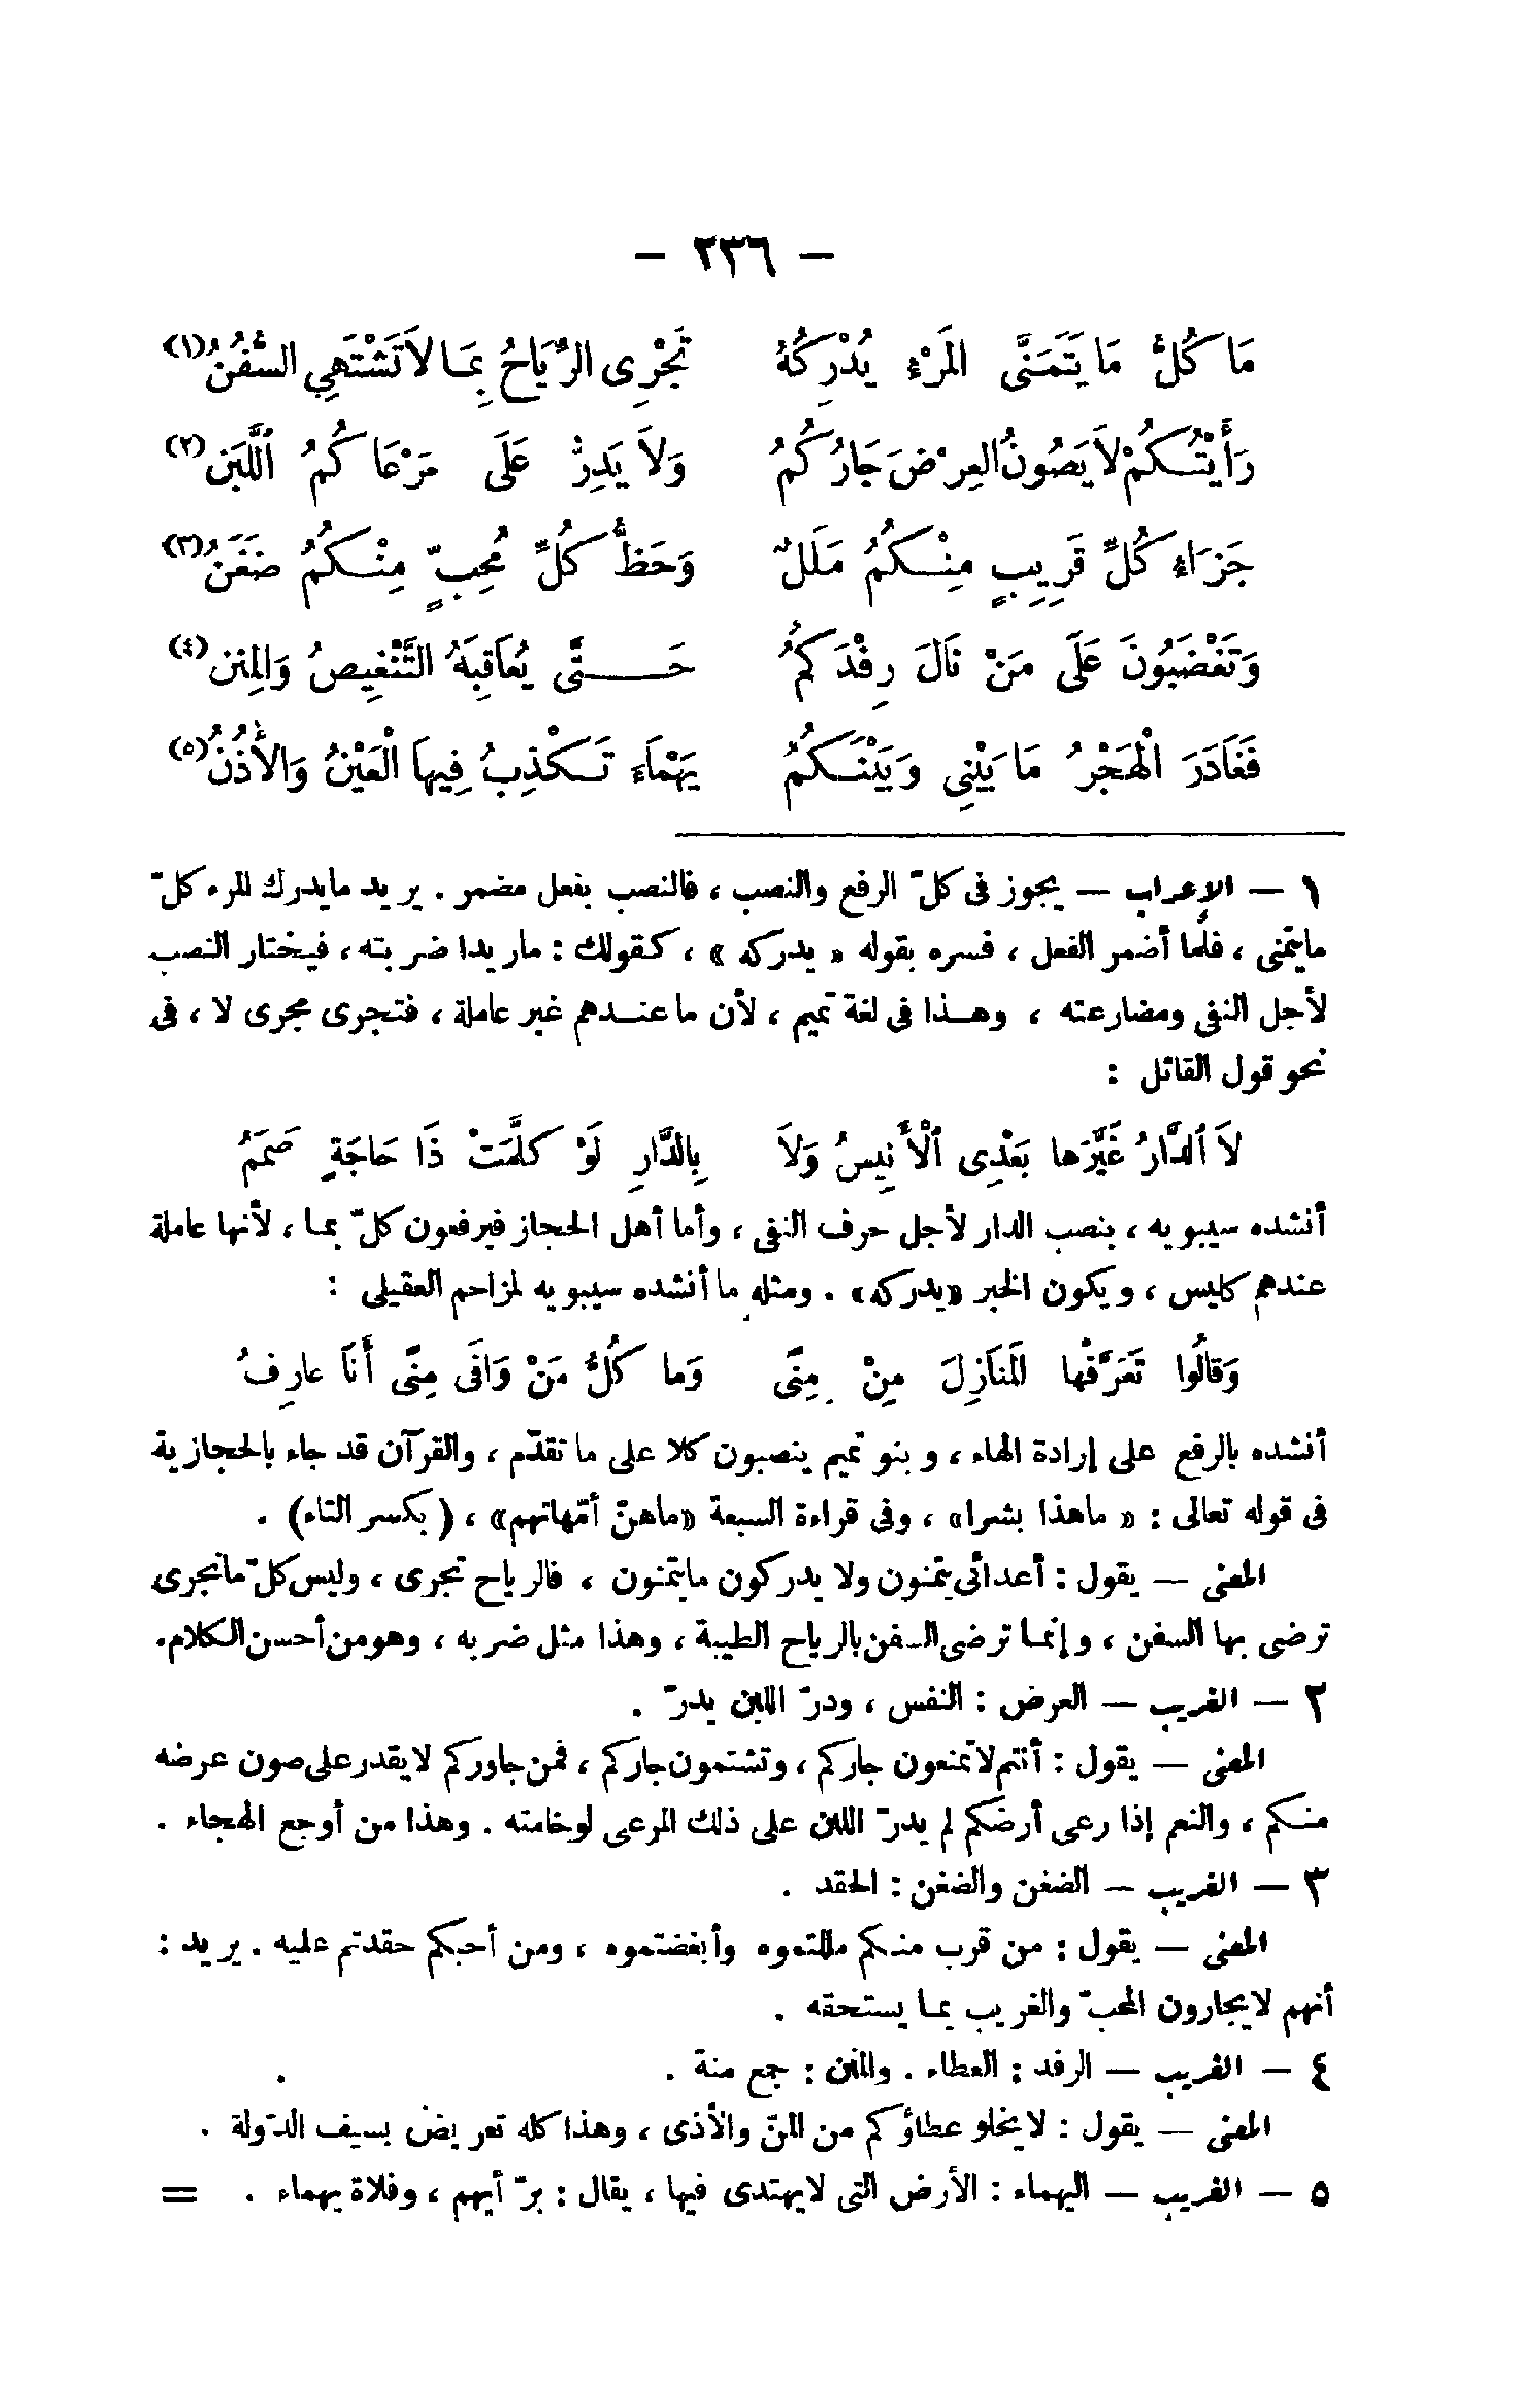 – ٢٣٦ –
مَا كُلُّ مَا يَتَمَنَّى المَرْءُ يُدْرِكُهُ تَجْرِى الرِّيَاحُ بِمَا لاَ تَشْتَهِي السُّفُنُ (١)
رَأَيْتُكُمْ لاَ يَصُونُ العِرْضَ جَارُكُمُ وَلاَ يَدِرُّ عَلَى مَرْعَاكُمُ ٱللَّبَنُ (٢)
جَزَاءُ كُلِّ قَرِيبٍ مِنْكُمُ مَلَلٌ وَحَظُّ كُلِّ مُحِبٍّ مِنْكُمُ ضَغَنُ (٣)
وَتَغْضَبُونَ عَلَى مَنْ نَالَ رِفْدَكُمُ حَتَّى يُعَاقِبَهُ التَّنْغِيصُ وَالمِنَن (٤)
فَغَادَرَ الْهَجْرُ مَا بَيْنِى وَبَيْنَكُمُ يَهْمَاءَ تَكْذِبُ فِيهاَ الْعَيْنُ وَالأُذُنُ (٥)
١ – الإعراب – يجوز فى كلّ الرفع والنصب ، فالنصب بفعل مضمر . يريد مايدرك المرء كلّ
مايتمنى ، فلما أضمر الفعل ، فسره بقوله « يدركه » ، كقولك : مازيدا ضربته ، فيختار النصب
لأجل النفى ومضارعته ، وهذا فى لغة تميم ، لأن ما عندهم غير عاملة ، فتجرى مجرى لا ، فى
نحو قول القائل :
لاَ ٱلدَّارُ غَيَّرَها بَعْدِى ٱلْأَنِيسُ وَلاَ بِالدَّارِ لَوْ كلَّمَتْ ذَا حَاجَةٍ صَمَمُ
أنشده سيبويه ، بنصب الدار لأجل حرف النفى ، وأما أهل الحجاز فيرفعون كلّ بما ، لأنها عاملة
عندهم كليس ، ويكون الخبر «يدركه» . ومثله ما أنشده سيبويه لمزاحم العقيلى :
وَقالُوا تَعَرَّفْها المَنَازِلَ مِنْ مِنًى وَما كُلُّ مَنْ وَافَى مِنًى أَنَا عارِفُ
أنشده بالرفع على إرادة الهاء ، وبنو تميم ينصبون كلا على ما تقدّم ، والقرآن قد جاء بالحجازية
فى قوله تعالى : « ماهذا بشرا» ، وفى قراءة السبعة «ماهنّ أمّهاتهم» ، (بكسر التاء) .
المعنى – يقول : أعدائى يتمنون ولا يدركون مايتمنون ، فالرياح تجرى ، وليس كلّ ماتجرى
ترضى بها السفن ، وإنما ترضى السفن بالرياح الطيبة ، وهذا مثل ضربه ، وهو من أحسن الكلام.
٢ – الغريب – العرض : النفس ، ودرّ اللبن يدرّ .
المعنى – يقول : أنتم لاتمنعون جاركم ، وتشتمون جاركم ، فمن جاوركم لايقدر على صون عرضه
منكم ، والنعم إذا رعى أرضكم لم يدرّ اللبن على ذلك المرعى لوخامته . وهذا من أوجع الهجاء .
٣ – الغريب – الضغن والضغن : الحقد .
المعنى – يقول : من قرب منكم مللتموه وأبغضتموه ، ومن أحبكم حقدتم عليه . يريد :
أنهم لايجازون المحبّ والغريب بما يستحقه .
٤ – الغريب – الرفد : العطاء . والمنن : جمع منة .
المعنى – يقول : لايخلو عطاؤكم من المنّ والأذى ، وهذا كله تعريض بسيف الدّولة .
٥ – الغريب – اليهماء : الأرض التى لايهتدى فيها ، يقال : برّ أيهم ، وفلاة يهماء . =